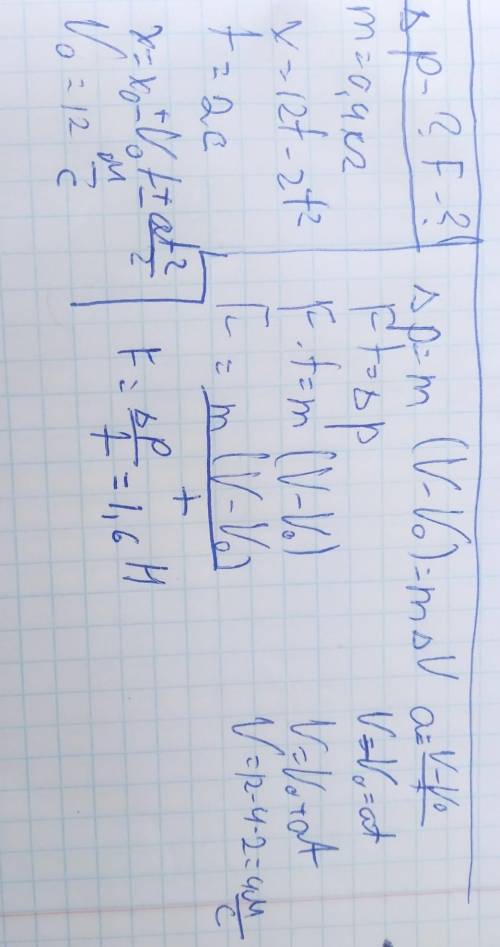 Δp-? F-?
m=0,4кг
x=12t-2t²
t=2c
x=x₀+V₀t+at²/2
V₀=12 м/с
Δp=m(V-V₀)=mΔV
Ft=Δp
F·t=m(V-V₀)
F=m(V-V₀)/t
F=Δp/t=1,6 Н
a=V-V₀/t
V-V₀=at
V=V₀+at
V=12-4·2=4м/с